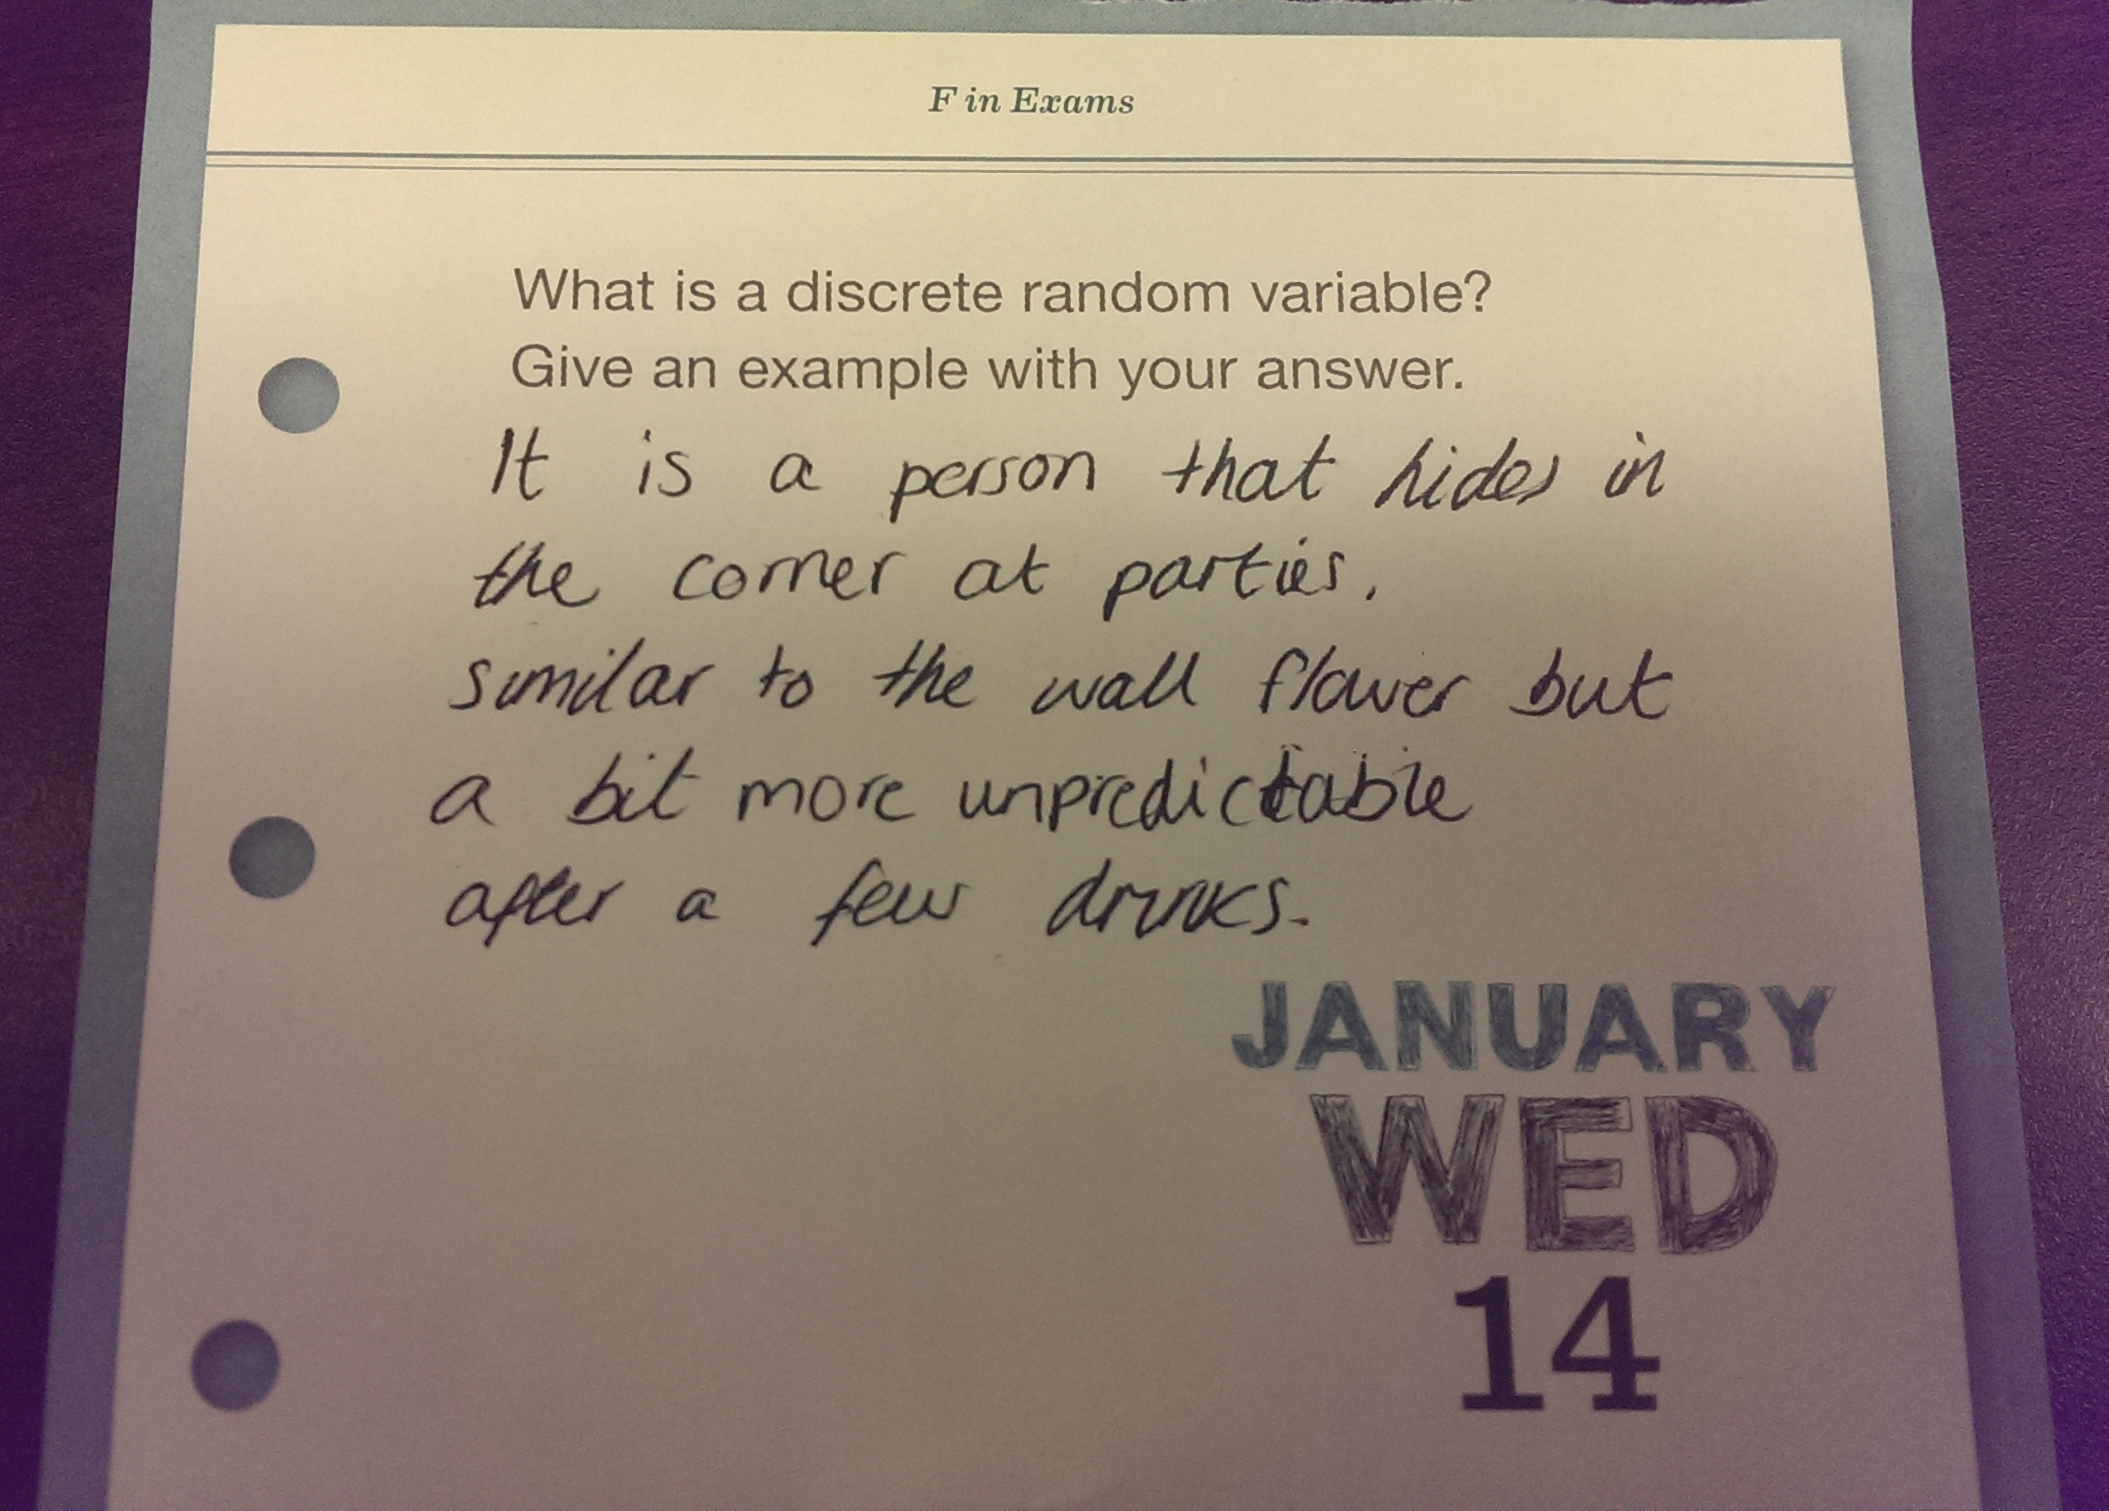 F in Exams
What is a discrete random variable?
Give an example with your answer.
It is a person that hides in
the corner at parties.
similar to the wall flower but
a bit more unpredictable
after a few drinks.
JANUARY
WED
14